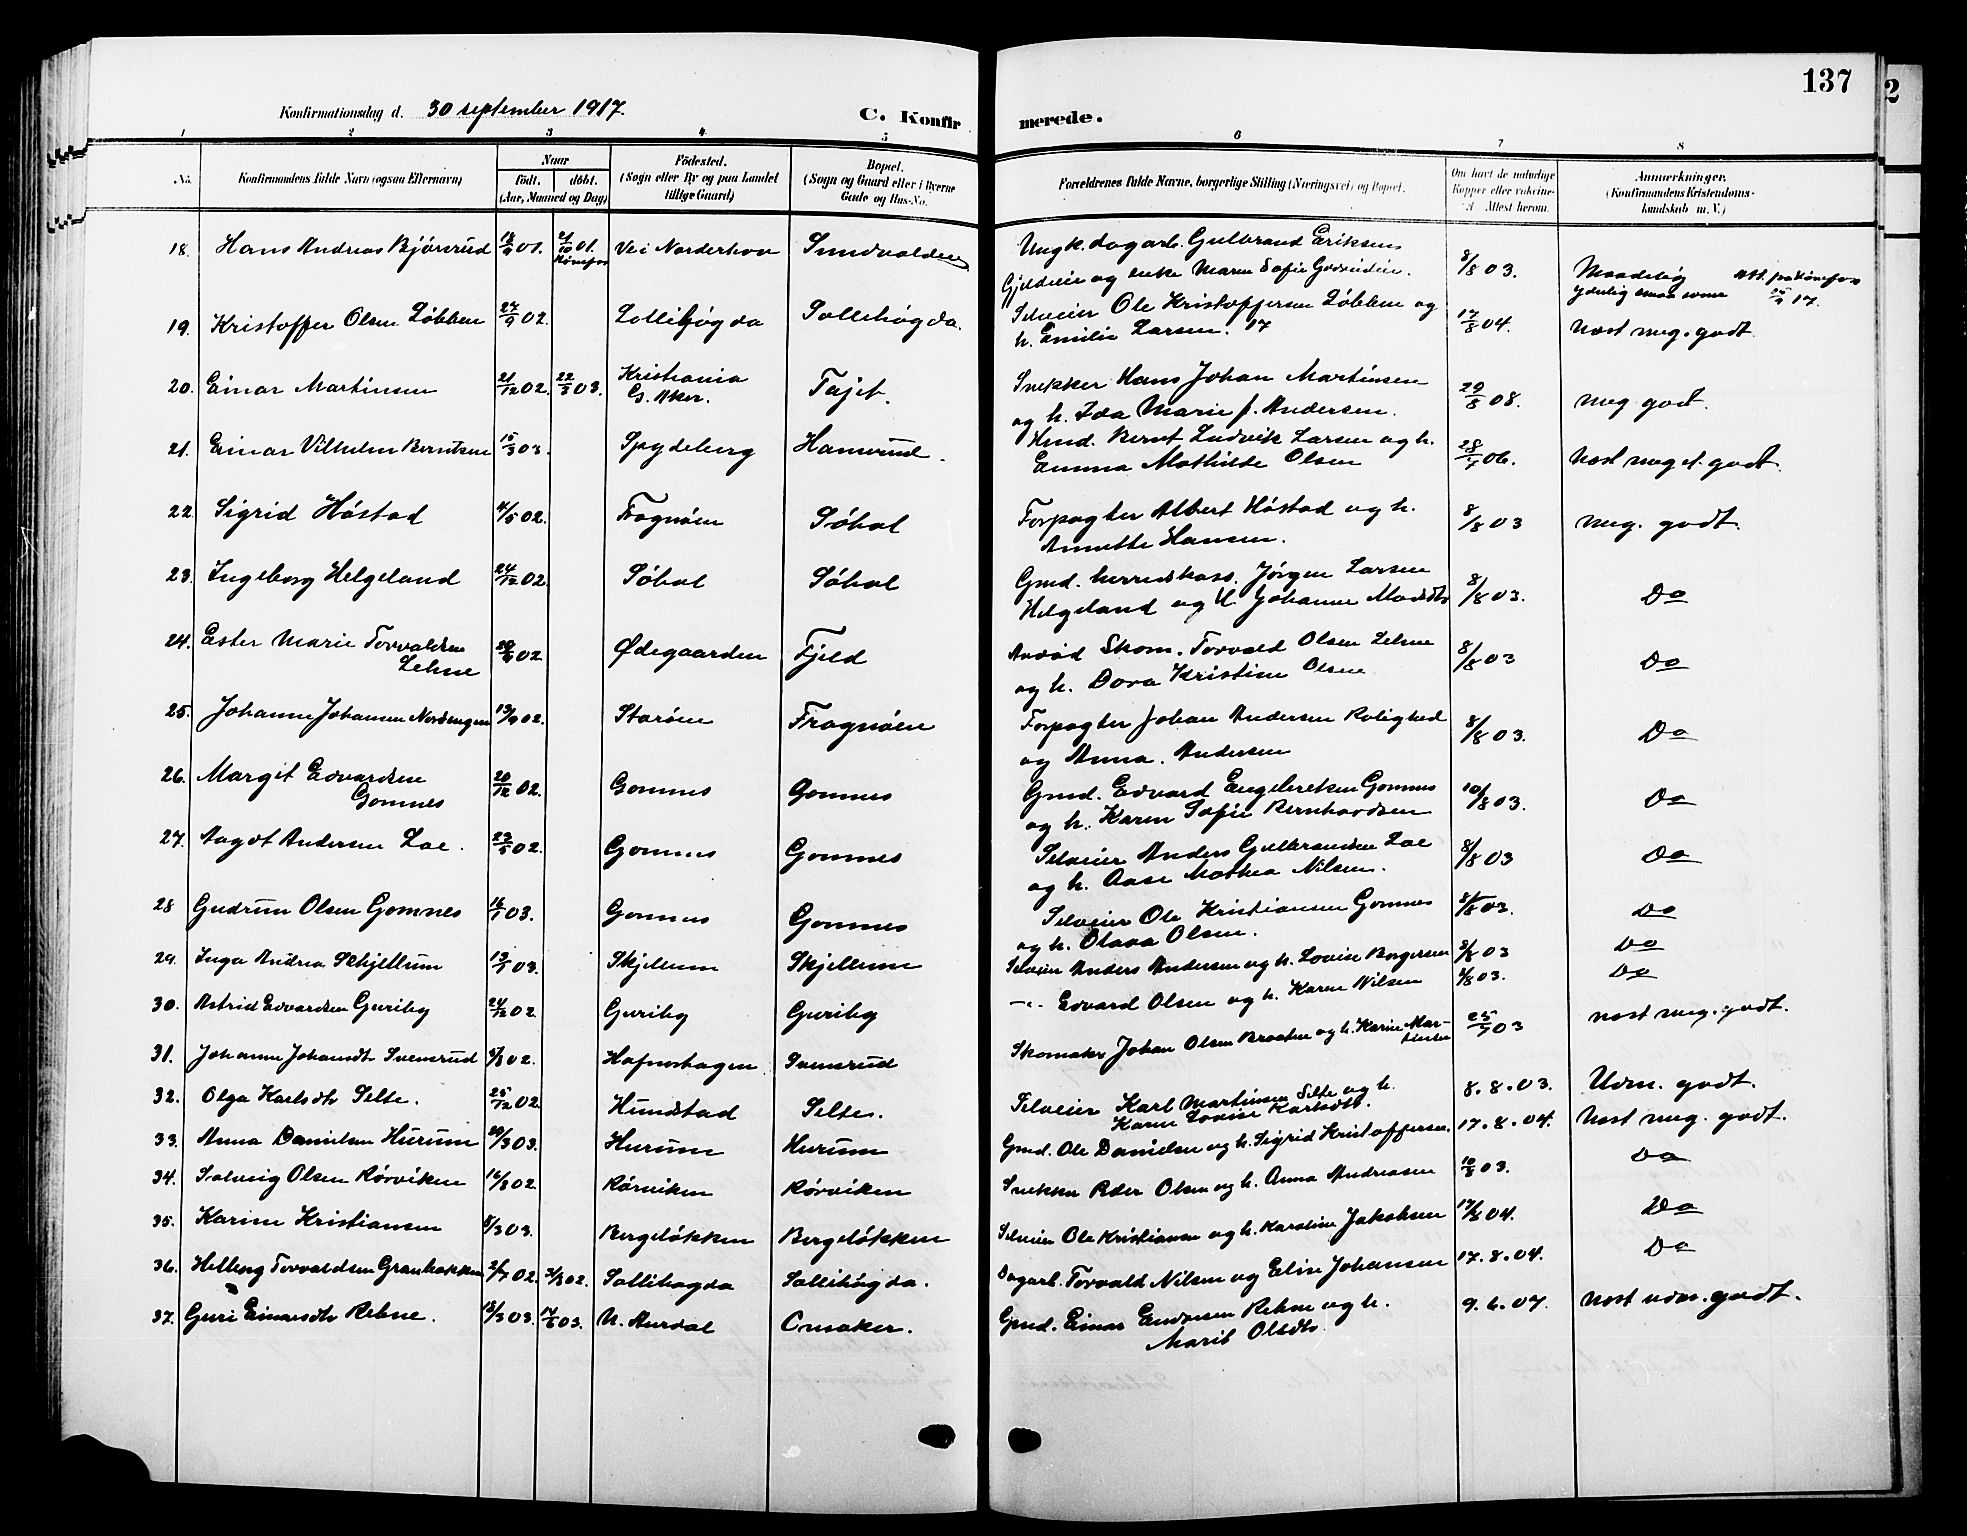 137
2
Konfirmationsdag d. 30 september 1917.
C. Konfirmerede.
1 2 3 4 5 6 7 8
No.
Konfirmandens fulde Navn (ogsaa Efternavn)
Naar
födt. döbt.
(Aar, Maaned og Dag)
Födested.
(Sogn eller By og paa Landet
tillige Gaard)
Bopæl.
(Sogn og Gaard eller i Byerne
Gade og Hus-No.
Forældrenes fulde Navne, borgerlige Stilling (Næringsvei) og Bopæl.
Om havt de naturlige
Kopper eller vaksine-
Attest herom.
Anmærkninger.
(Konfirmandens Kristendoms-
kundskab m. V.)
18. Hans Andreas Bjørnrud 18/9 01. 21/10 01. Hønefos Vei Norderhov Sundvolden Ungk. dagarb. Gulbrand Eriksen 8/8 03. Maadelig
og enke Maren Sofie
19. Kristoffer Olsen Løbben 27/9 02. Sollihøgda Sollihøgda. Selveier Ole Kristoffersen Løbben og 17/8 04. Næst meg. godt.
h. Emilie Larsen. 17
20. Einar Martinsen 21/12 02. 22/3 03. Kristiania G. Aker. Fajet. Snekker Hans Johan Martinsen 29/8 08. meg godt.
og h. Ida Marie f. Andersen.
21. Einar Vilhelm Berntsen 15/3 03. Spydeberg Hamrud. Hmd. Bernt Ludvik Larsen og h. 28/7 06. Næst meget godt.
Emma Mathilde Olsen
22. Sigrid Høstad 4/5 02. Frognøen Søhol Forpagter Albert Høstad og h. 8/8 03 meg. godt.
Annette Hansen.
23. Ingeborg Helgeland 24/12 02. Søhol Søhol Gmd. herredskass. Jørgen Larsen 8/8 03. Do
Helgeland og h. Johanne
24. Ester Marie Torvaldsen 02 Ødegaarden Fjeld Skom. Torvald Olsen Lehne 8/8 03 Do
Lehne og h. Dora Kristine Olsen
25. Johanne Johansen Nordengen 13/9 02. Storøen Frognøen Forpagter Johan Andersen Rolighed 8/8 03. Do
og Anna. Andersen
26. Margit Edvardsen 20/12 02. Gomnes Gomnes Gmd. Edvard Engebretsen Gomnes 10/8 03. Do
Gomnes og h. Karen Sofie Bernhardsen
27. Aagot Andersen Loe. 23/5 02. Gomnes Gomnes Selveier Anders Gulbrandsen Loe 8/8 03 Do
og h. Aase Mathea Nilsen.
28 Gudrun Olsen Gomnes 16/1 03. Gomnes Gomnes Selveier Ole Kristiansen Gomnes 8/8 03. Do
og h. Olava Olsen.
29. Inga Andrea Skjellum 13/1 03. Skjellum Skjellum Selveier Anders Andersen og h. Lovise Borgersen 8/8 03 Do
30. Astrid Edvardsen Guriby 24/12 02. Guriby Guriby -"- Edvard Olsen og h. Karen Nilsen 8/8 03. Do
31. Johanne Johansdtr Svensrud 02. Hafnorhagen Svensrud Skomaker Johan Olsen Braaten og h. Karine Martinsen 25/7 03 næst meg. godt.
32. Olga Karlsdtr Selte. 25/12 02. Hundstad Selte. Selveier Karl Martinsen Selte og h. 8. 8. 03. Udm. godt.
Karen Lovise Karlsdtr.
33. Anna Danielsen Hurum 20/3 03. Hurum Hurum Gmd. Ole Danielsen og h. Sigrid Kristoffersen. 17. 8. 04. Næst meg. godt.
34. Solveig Olsen Rørviken 16/8 02. Rørviken Rørviken Snekker Peder Olsen og h. Anna Andreasen 10/8 03. Do
35. Karine Kristiansen 8/3 03. Bergeløkken Bergeløkken Selveier Ole Kristiansen og h. Karoline Jakobsen 17/8 04. Do
36. Helborg Torvaldsen Granbakken 2/7 02. 02. Sollihøgda Sollihøgda. Dagarb. Torvald Nilsen og Elise Johansen 17. 8. 04. Do
37. Guri Einarsdtr Rehne. 18/3 03. 17/6 03. N. Aurdal Onsaker. Gmd. Einar Endresen Rehne og h. 9. 6. 07. Næst udm. godt.
Marit Olsdtr.